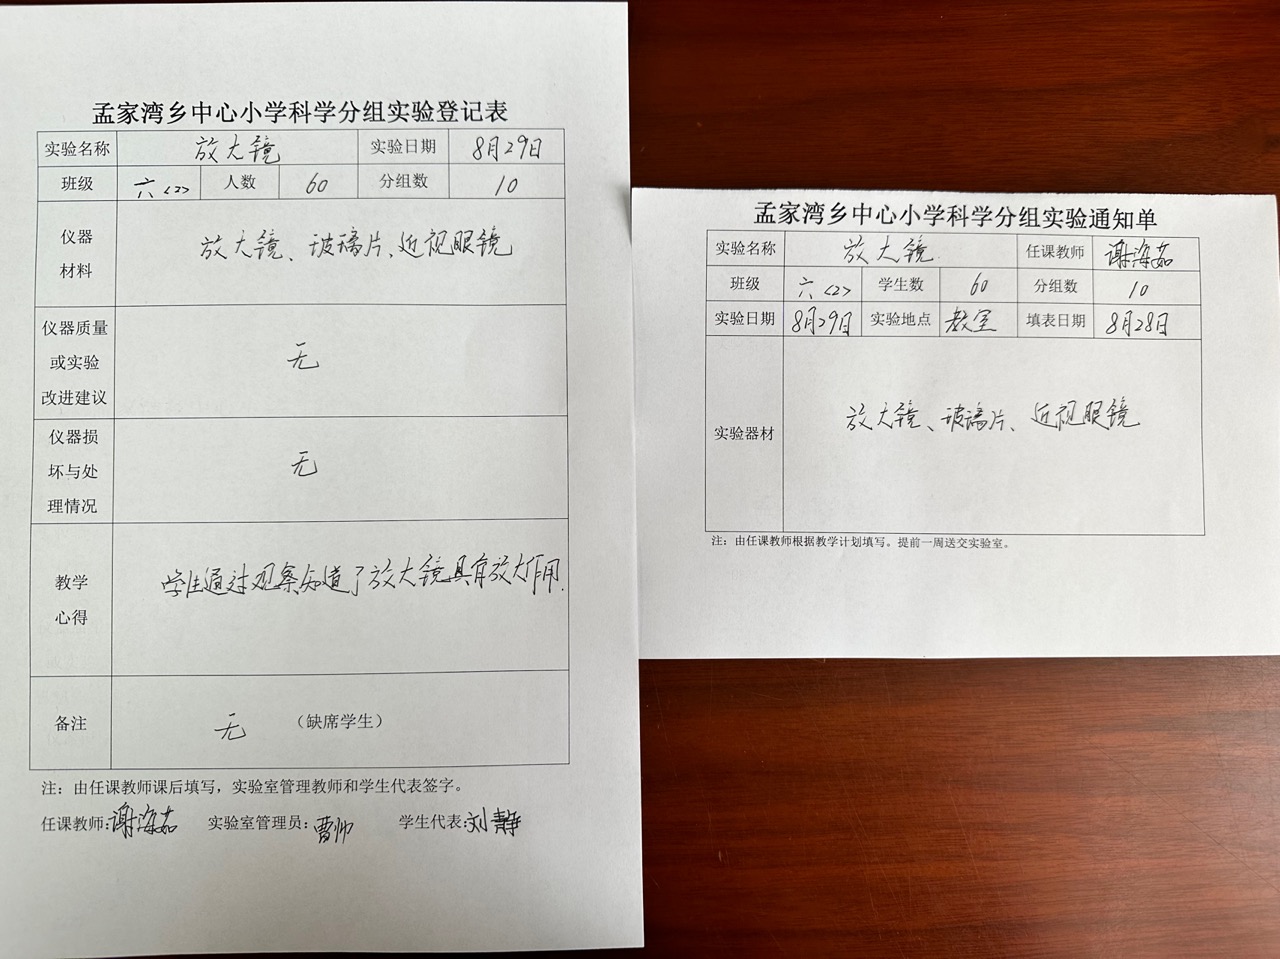 孟家湾乡中心小学科学分组实验登记表
实验名称 放大镜 实验日期 8月29日
班级 六<2> 人数 60 分组数 10
仪器
材料
放大镜、玻璃片、近视眼镜
仪器质量
或实验
改进建议
无
仪器损
坏与处
理情况
无
教学
心得
学生通过观察知道了放大镜具有放大作用.
备注 无 (缺席学生)
注：由任课教师课后填写，实验室管理教师和学生代表签字。
任课教师:谢海茹 实验室管理员:曹帅 学生代表:刘静
孟家湾乡中心小学科学分组实验通知单
实验名称 放大镜. 任课教师 谢海茹
班级 六<2> 学生数 60 分组数 10
实验日期 8月29日 实验地点 教室 填表日期 8月28日
实验器材 放大镜、玻璃片、近视眼镜
注：由任课教师根据教学计划填写。提前一周送交实验室。